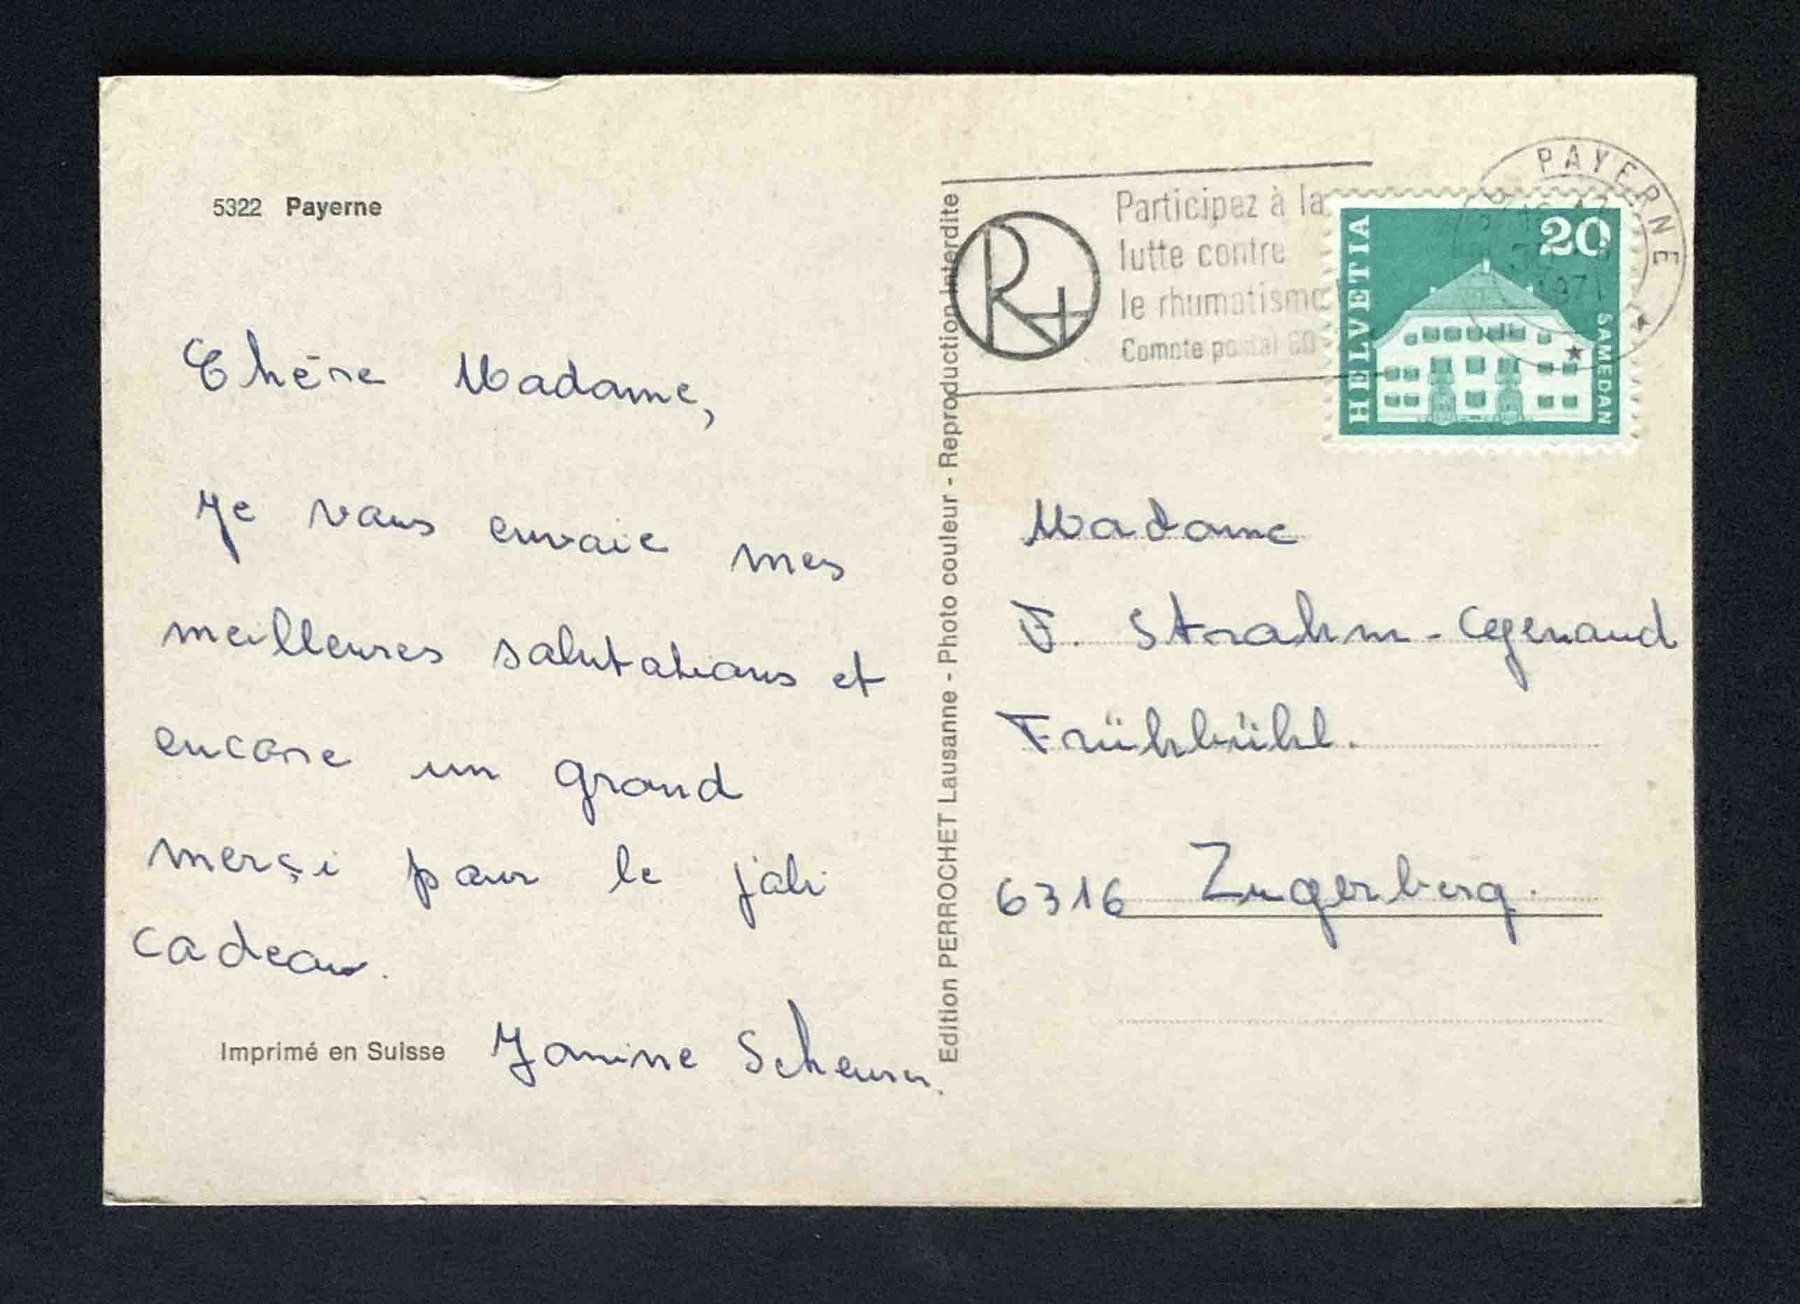 5322 Payerne
Chère Madame,
Je vous envoie mes
meilleures salutations et
encore un grand
merçi pour le joli
cadeau.
Janine Scheurer.
Imprimé en Suisse
Edition PERROCHET Lausanne - Photo couleur - Reproduction interdite
Participez à la
lutte contre
le rhumatisme
Compte postal 60
R
PAYERNE
1971
HELVETIA
20
SAMEDAN
Madame
F. Strahm - Cgenaud
Frühbühl.
6316 Zugerberg.